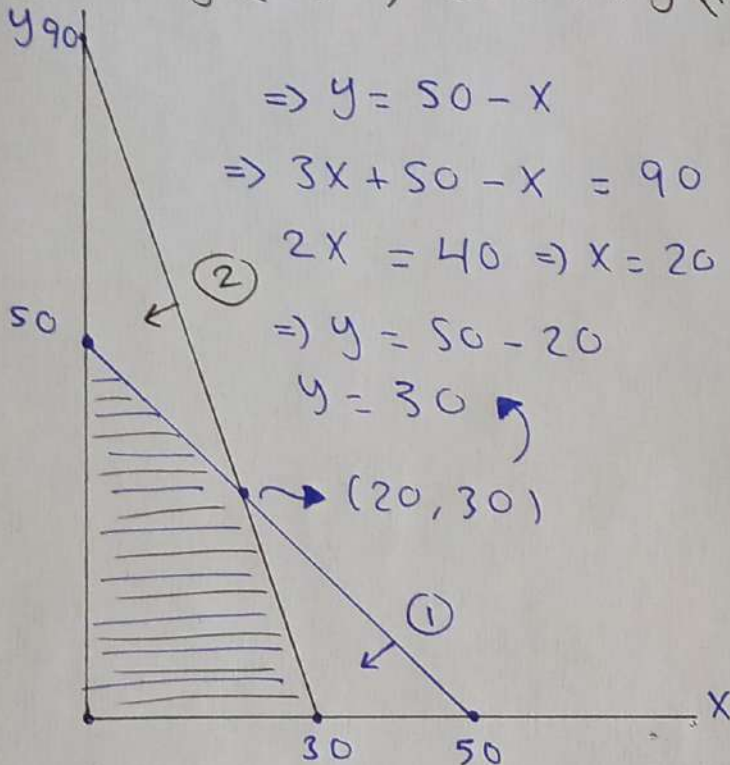 y 90
=> y = 50 - x
=> 3x + 50 - x = 90
2x = 40 => x = 20
②
50
=> y = 50 - 20
y = 30
(20, 30)
①
x
30 50